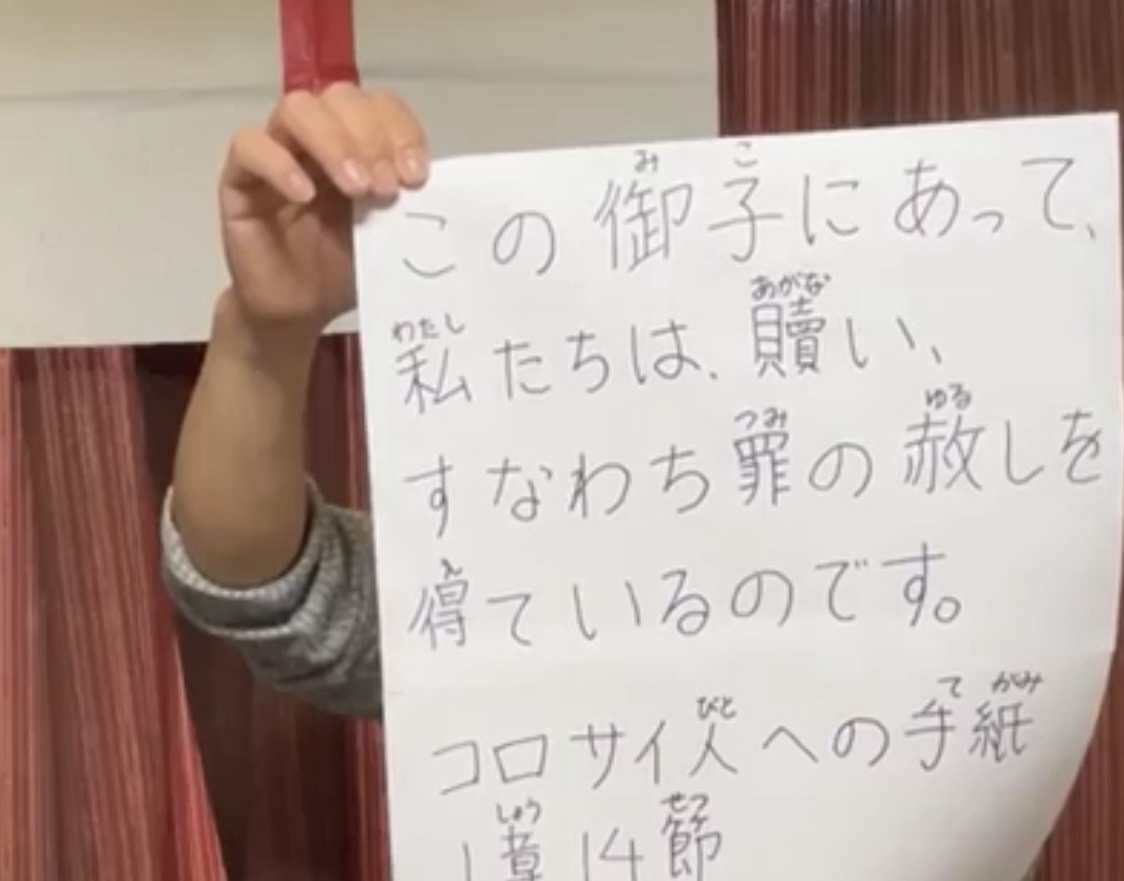 この御子にあって、
私たちは、贖い、
すなわち罪の赦しを
得ているのです。
コロサイ人への手紙
1章14節